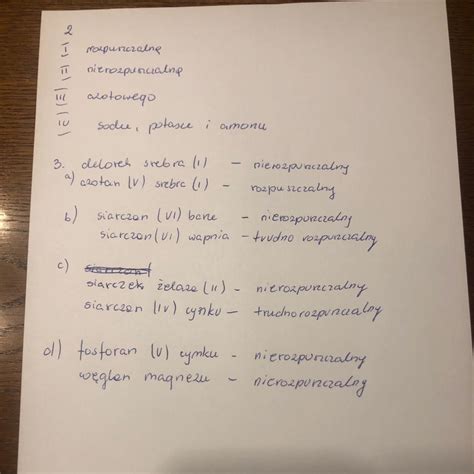 2
I rozpuszczalne
II nierozpuszczalne
III azotowego
IV sodu, potasu i amonu
3. chlorek srebra (I) – nierozpuszczalny
a) azotan (V) srebra (I) – rozpuszczalny
b) siarczan (VI) baru – nierozpuszczalny
siarczan (VI) wapnia – trudno rozpuszczalny
c)
siarczek żelaza (II) – nierozpuszczalny
siarczan (IV) cynku – trudnorozpuszczalny
d) fosforan (V) cynku – nierozpuszczalny
węglan magnezu – nierozpuszczalny